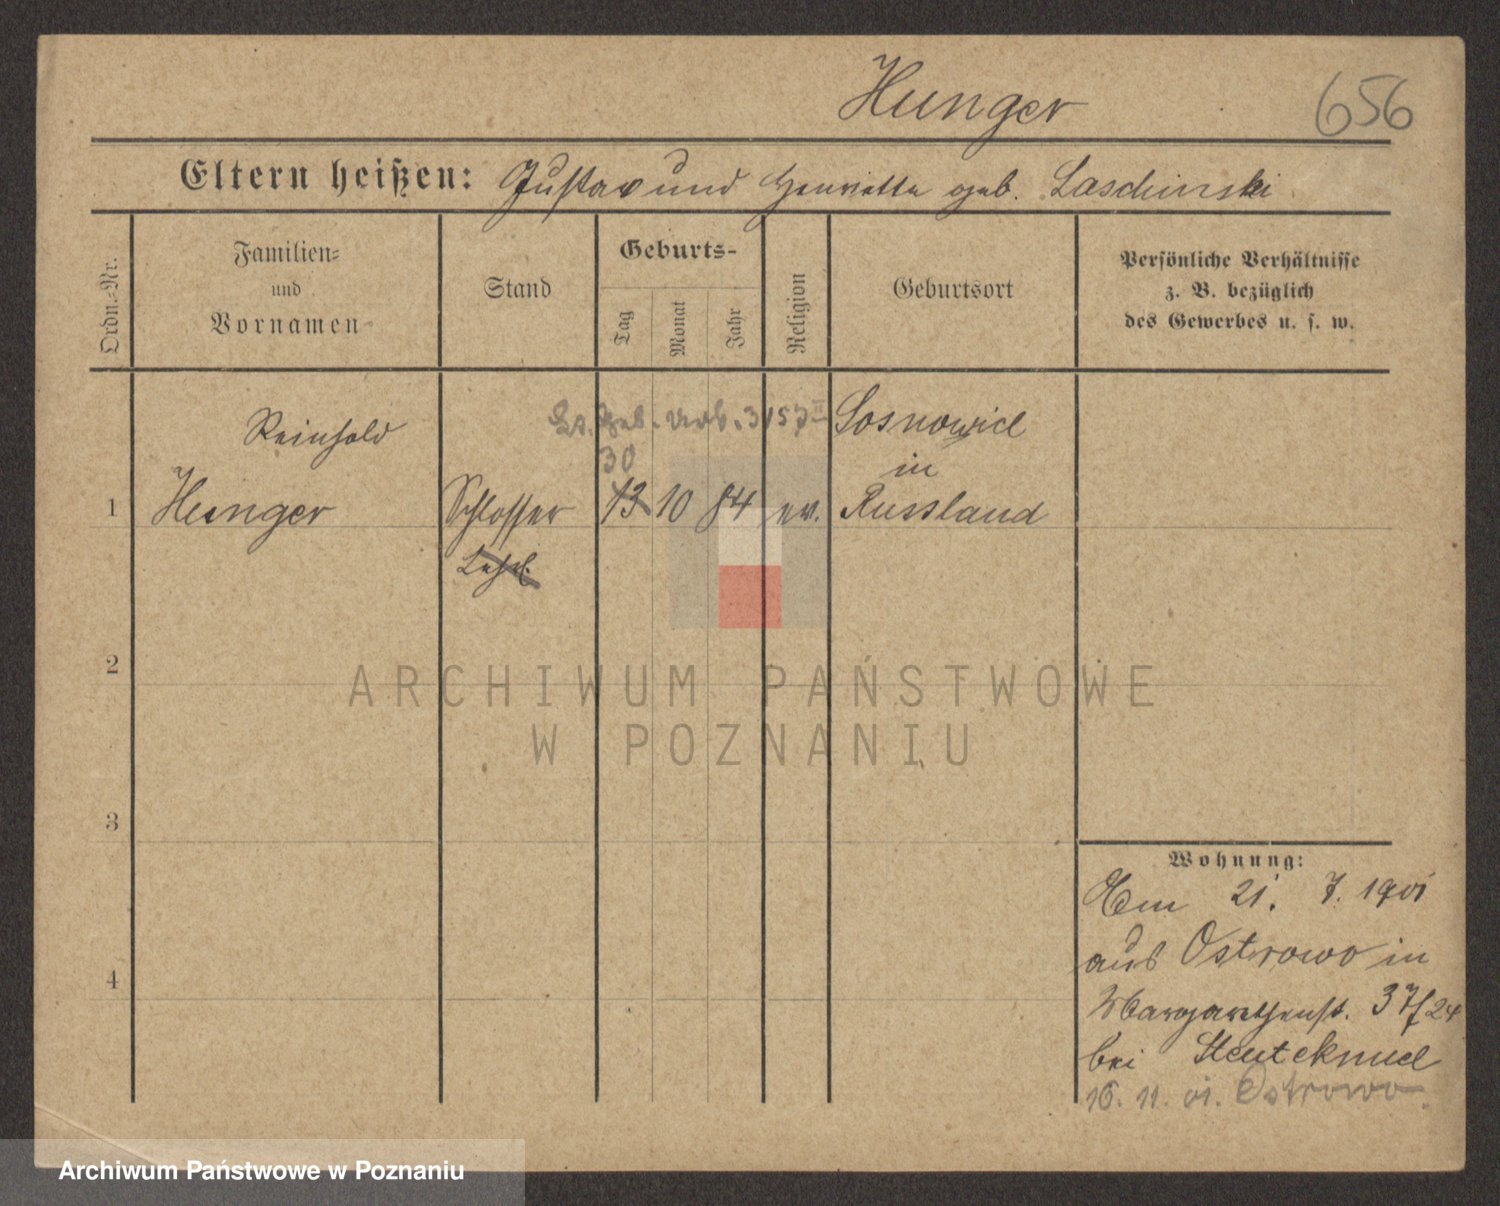 Hunger
656
Eltern heißen: Gustav und Henriette geb. Laschinski
Ordn.-Nr.
Familien=
und
Vornamen
Stand
Geburts-
Tag
Monat
Jahr
Religion
Geburtsort
Persönliche Verhältnisse
z. B. bezüglich
des Gewerbes u. s. w.
Reinhold
Geb. Urk. 3157 II
Sosnowice
30
in
1
Hunger
Schlosser
13
10
84
ev.
Russland
Lehrl.
2
ARCHIWUM PAŃSTWOWE
W POZNANIU
3
4
Wohnung:
21. 7. 1901
aus Ostrowo in
Margarethenst. 37/24
bei
16. 11. 01. Ostrowo
Archiwum Państwowe w Poznaniu